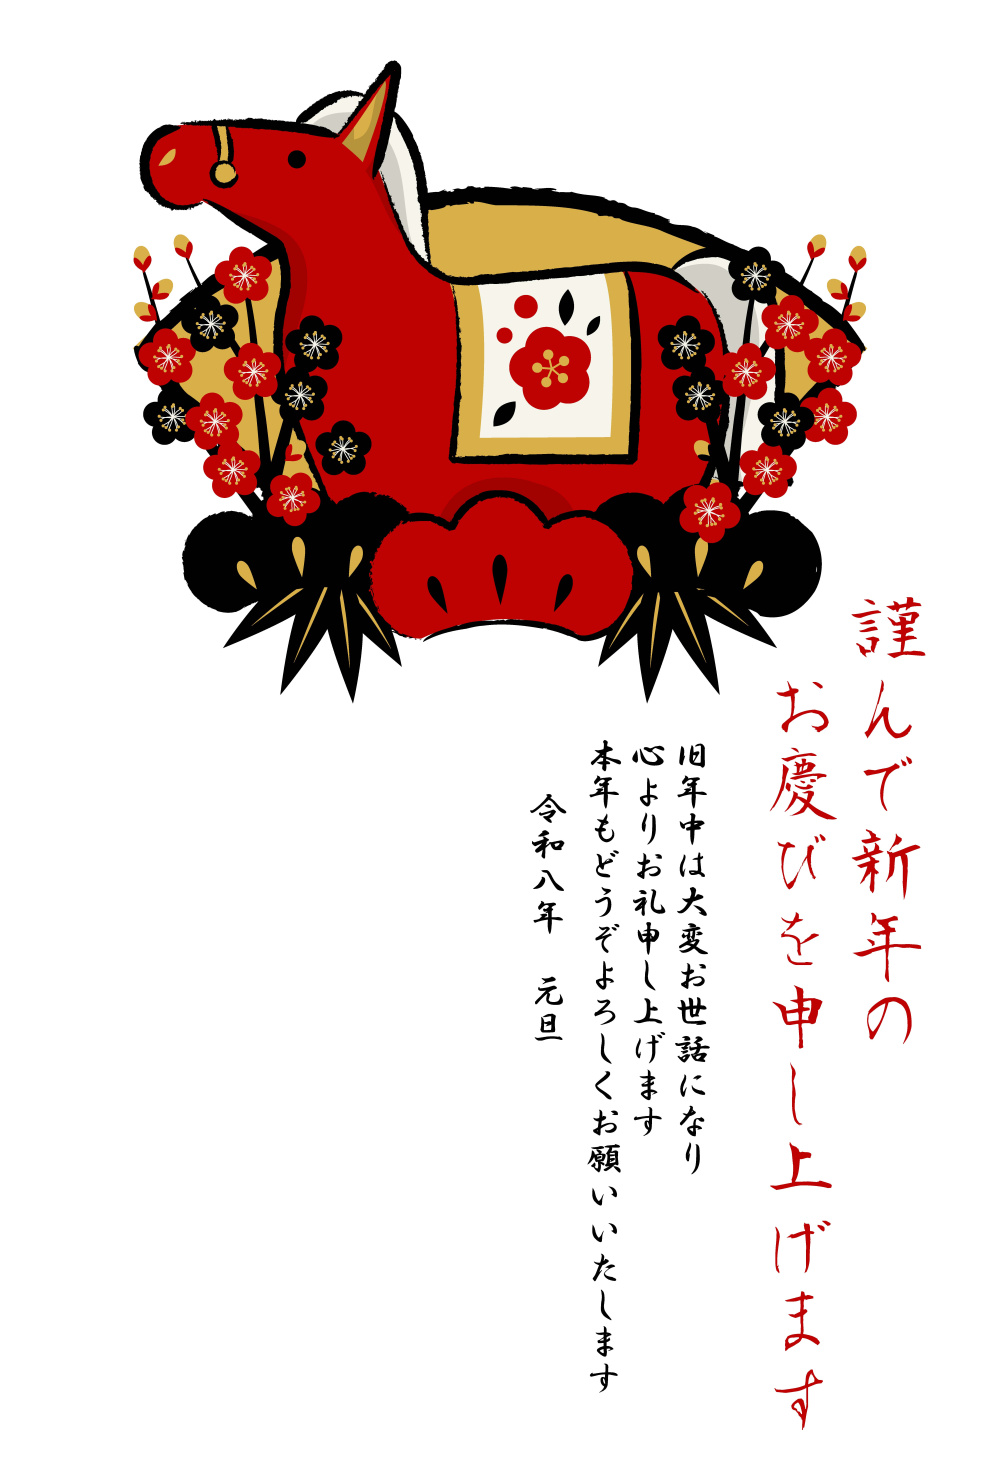 謹んで新年の
お慶びを申し上げます
旧年中は大変お世話になり
心よりお礼申し上げます
本年もどうぞよろしくお願いいたします
令和八年　元旦